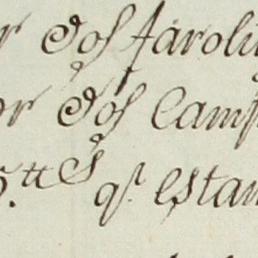 r dos faroli
or dos Camp
5.tt.s q.e Estan